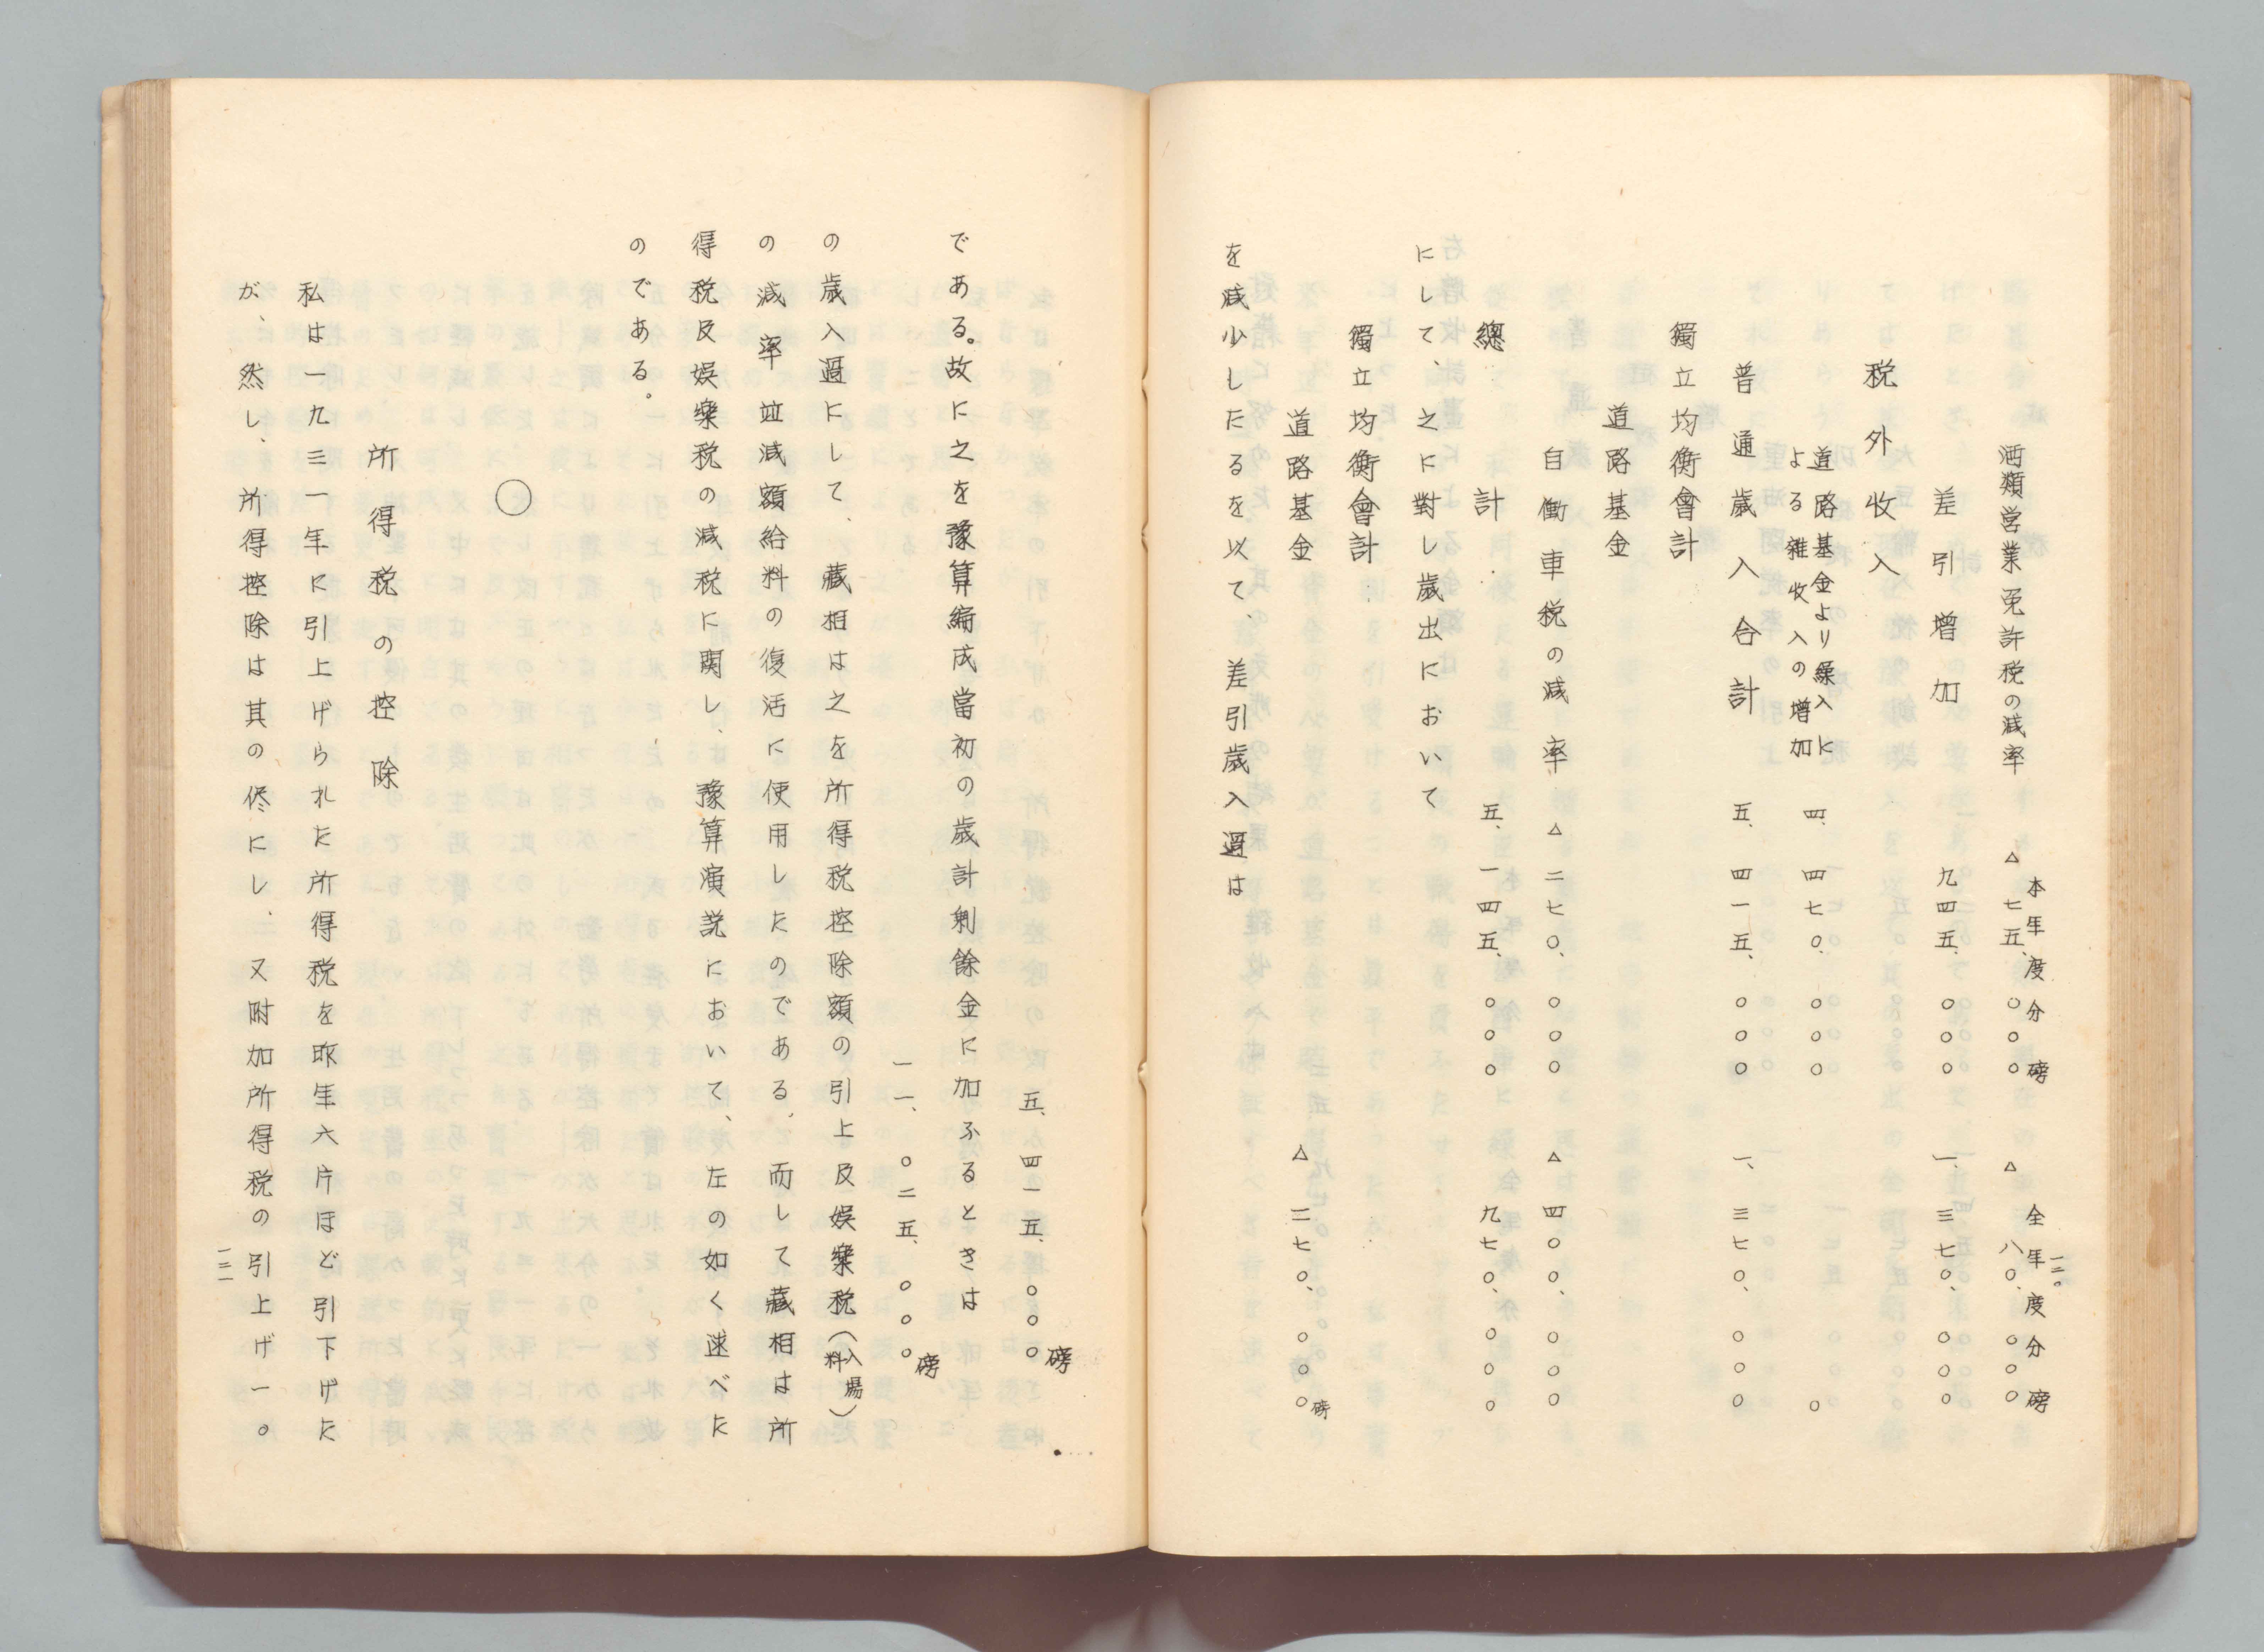 一二〇
本年度分 磅 全年度分 磅
酒類営業免許税の減率 △七五、〇〇〇 △八〇、〇〇〇
差引増加 九四五、〇〇〇 一、三七〇、〇〇〇
税外收入
道路基金より繰入に
よる雑收入の増加 四、四七〇、〇〇〇 〇
普通歳入合計 五、四一五、〇〇〇 一、三七〇、〇〇〇
獨立均衡會計
道路基金
自働車税の減率 △二七〇、〇〇〇 △四〇〇、〇〇〇
總計 五、一四五、〇〇〇 九七〇、〇〇〇
にして、之に對し歳出において
獨立均衡會計
道路基金 △二七〇、〇〇〇磅
を減少したるを以て、差引歳入過は
五、四一五、〇〇〇磅
である。故に之を豫算編成當初の歳計剰餘金に加ふるときは
一一、〇二五、〇〇〇磅
の歳入過にして、藏相は之を所得税控除額の引上及娯樂税(入場料)
の減率並減額給料の復活に使用したのである、而して藏相は所
得税及娯樂税の減税に関し、豫算演説において、左の如く述べた
のである。
〇
所得税の控除
私は一九三一年に引上げられた所得税を昨年六片ほど引下げた
が、然し、所得控除は其の侭にし、又附加所得税の引上げ一〇
一二一